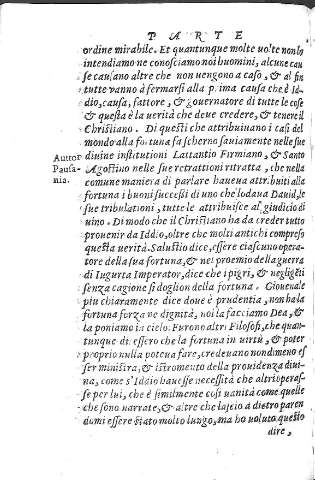 PARTE
ordine mirabile. Et quantunque molte uolte non lo
intendiamo ne conosciamo noi huomini, alcune cau
se causano altre che non uengono a caso, & al fin
tutte uanno à fermarsi alla prima causa che è Id-
dio, causa, fattore, & gouernatore di tutte le cose
& questa è la uerità che deue credere, & tenere il
Christiano. Di questi che attribuiuano i casi del
mondo alla fortuna fa scherno sauiamente nelle sue
Auttor diuine institutioni Lattantio Firmiano, & Santo
Pausa- Agostino nelle sue retrattioni ritratta, che nella
nia. comune maniera di parlare haueua attribuiti alla
fortuna i buoni successi di uno che lodaua Dauid, le
sue tribulationi, tutte le attribuisce al giudicio di
uino. Di modo che il Christiano ha da creder tutto
prouenir da Iddio, oltre che molti antichi compreso
questa uerità. Salustio dice, essere ciascuno opera-
tore della sua fortuna, & nel proemio della guerra
di Iugurta Imperator, dice che i pigri, & negligēti
senza cagione si doglion della fortuna. Giouenale
piu chiaramente dice doue è prudentia, non ha la
fortuna forza ne dignità, noi la facciamo Dea, &
la poniamo in cielo. Furono altri Filosofi, che quan-
tunque di essero che la fortuna in uirtù, & poter
proprio nulla potena fare, credeuano nondimeno es
ser ministra, & istromento della prouidenza diui-
na, come s'Iddio hauesse necessità che altri operas-
se per lui, che è semilmente così uanità come quelle
che sono narrate, & altre che lascio a dietro paren
domi essere stato molto lungo, ma ho uoluto questo
dire,